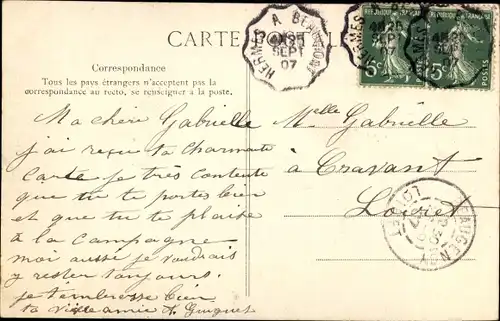 CARTE
HERMES A BEAUMONT
SEPT
07
RÉPUBLIQUE FRANÇAISE
5c
POSTES
5c
POSTES
Correspondance
Tous les pays étrangers n'acceptent pas la
correspondance au recto, se renseigner à la poste.
Ma chère Gabrielle
j'ai reçu ta charmante
carte je très contente
que tu te portes bien
et que tu te plaise
à la campagne
moi aussi je voudrais
y rester toujours.
je t'embrasse bien
ta vieille amie
Melle Gabrielle
à Cravant
Loiret
BEAUGENCY
LOIRET